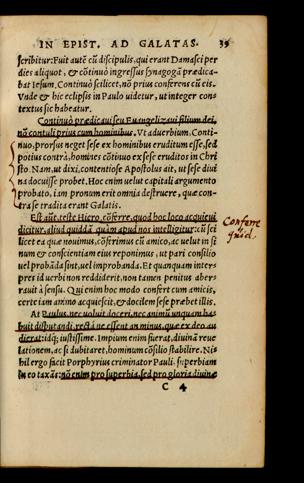 IN EPIST. AD GALATAS. 39
scribitur: Fuit autē cū discipulis, qui erant Damasci per
dies aliquot, & cōtinuò ingressus synagogā prædica-
bat Iesum, Continuò scilicet, nō prius conferens cū eis.
Vnde & hic eclipsis in Paulo uidetur, ut integer con-
textus sic habeatur.
Continuò prædicaui seu Euangelizaui filium dei,
nō contuli prius cum hominibus. Vt aduerbium, Conti-
nuo, prorsus neget sese ex hominibus eruditum esse, sed
potius contrà, homines cōtinuo ex sese eruditos in Chri
sto. Nam, ut dixi, contentiose Apostolus ait, ut sese diui
na docuisse probet. Hoc enim uelut capitali argumento
probato, iam pronum erit omnia destruere, quæ con-
tra se tradita erant Galatis.
Est aūt, teste Hiero. cōferre, quod hoc loco acquieui
dicitur, aliud quiddā, quàm apud nos intelligitur: cū sci
licet ea quæ nouimus, cōferimus cū amico, ac uelut in si
num & conscientiam eius reponimus, ut pari consilio
uel probāda sint, uel improbanda. Et quanquam inter-
pres id uerbi non reddiderit, non tamen penitus aber-
rauit à sensu. Qui enim hoc modo confert cum amicis,
certe iam animo acquiescit, & docilem sese præbet illis.
At Paulus, nec uoluit doceri, nec animū unquam ha-
buit disputandi, rectà ne esset an minus, quæ ex deo au
dierat: idq; iustissime. Impium enim fierat, diuinā reue
lationem, ac si dubitaret, hominum cōsilio stabilire. Ni-
hil ergo facit Porphyrius criminator Pauli, superbiam
in eo taxās: nō enim pro superbia, sed pro gloria diuinæ
C 4
Conferre
quid.